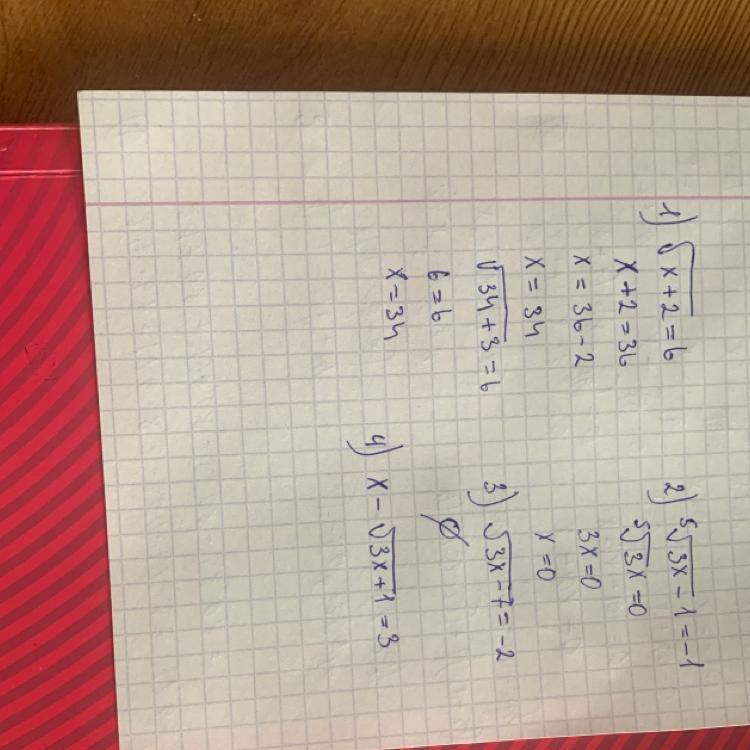 1) √x+2 = 6
x+2 = 36
x = 36-2
x = 34
√34+3 = 6
6 = 6
x = 34
2) ⁵√3x - 1 = -1
⁵√3x = 0
3x = 0
x = 0
3) √3x-7 = -2
∅
4) x - √3x+1 = 3